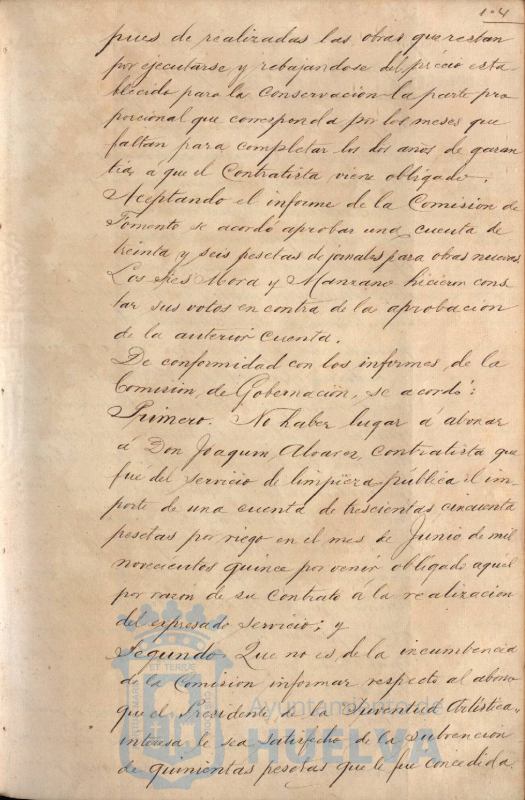 104
pues de realizadas las obras que restan
por ejecutarse y rebajandose del precio esta-
blecido para la conservacion la parte pro
porcional que corresponda por los meses que
faltan para completar los dos años de garan
tia, á que el Contratista viene obligado.
Aceptando el informe de la Comision de
Fomento se acordó aprobar una cuenta de
treinta y seis pesetas de jornales para obras nuevas.
Los Sres Mora y Manzano hicieron cons
tar sus votos en contra de la aprobacion
de la anterior cuenta.
De conformidad con los informes de la
Comision de Gobernacion, se acordó:
Primero. No haber lugar á abonar
á Don Joaquin Alvarez, contratista que
fué del servicio de limpieza pública el im-
porte de una cuenta de trescientas cincuenta
pesetas por riego en el mes de Junio de mil
novecientos quince por venir obligado aquel
por razón de su contrato á la realizacion
del expresado servicio; y
Segundo. Que no es de la incumbencia
de la Comision informar respecto al abono
que el Presidente de la Juventud Artística,
interesa le sea satisfecho de la subvencion
de quinientas pesetas que le fue concedida
Ayuntamiento de
HUELVA